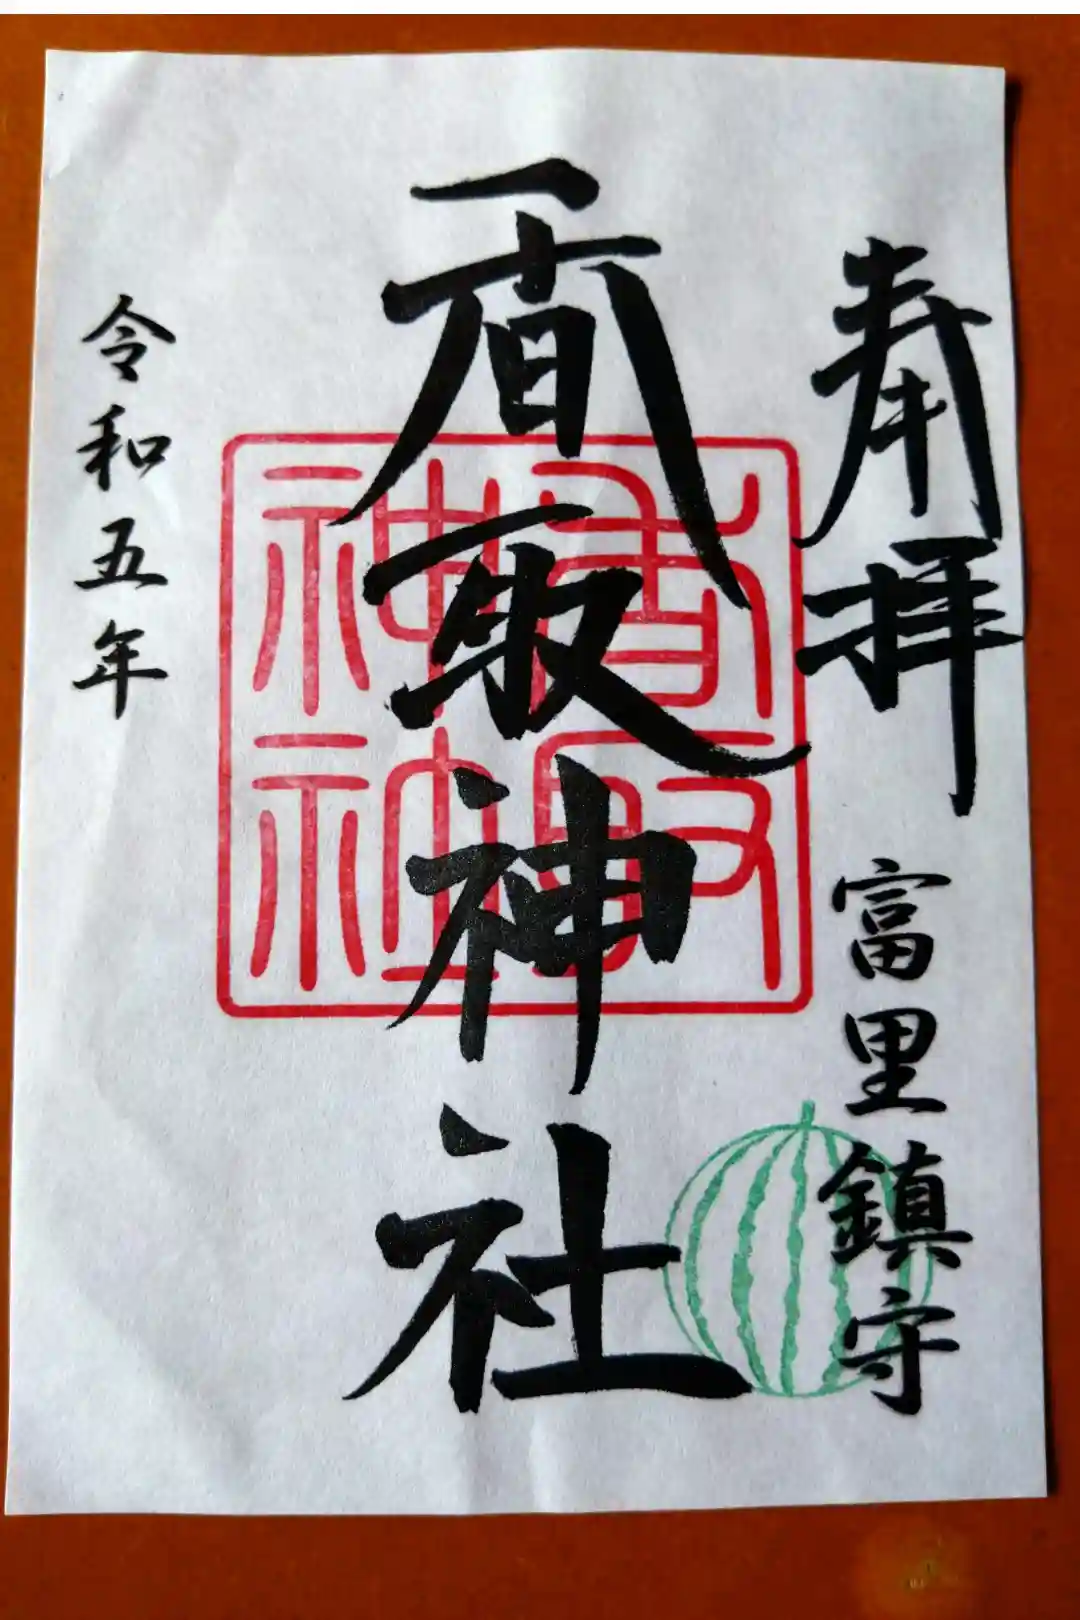 奉拝
富里鎮守
香取神社
香取
神社
令和五年